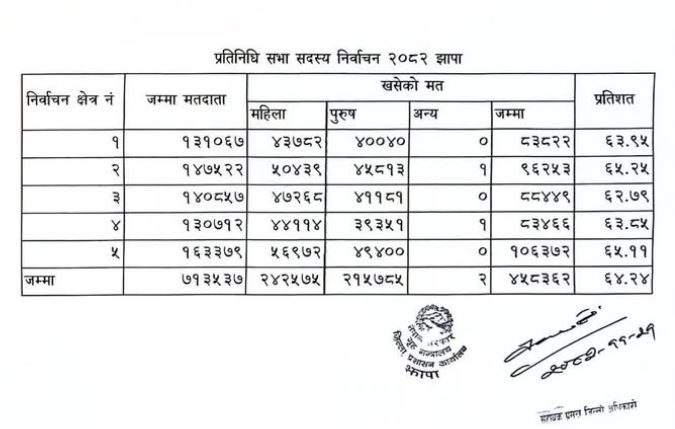 प्रतिनिधि सभा सदस्य निर्वाचन २०८२ झापा
निर्वाचन क्षेत्र नं जम्मा मतदाता खसेको मत प्रतिशत
महिला पुरुष अन्य जम्मा
१ १३१०६७ ४३७८२ ४००४० ० ८३८२२ ६३.९५
२ १४७५२२ ५०४३९ ४५८१३ १ ९६२५३ ६५.२५
३ १४०८५७ ४७२६८ ४११८१ ० ८८४४९ ६२.७९
४ १३०७१२ ४४११४ ३९३५१ १ ८३४६६ ६३.८५
५ १६३३७९ ५६९७२ ४९४०० ० १०६३७२ ६५.११
जम्मा ७१३५३७ २४२५७५ २१५७८५ २ ४५८३६२ ६४.२४
नेपाल सरकार
गृह मन्त्रालय
जिल्ला प्रशासन कार्यालय
झापा
२०८२-११-२१
सहायक प्रमुख जिल्ला अधिकारी